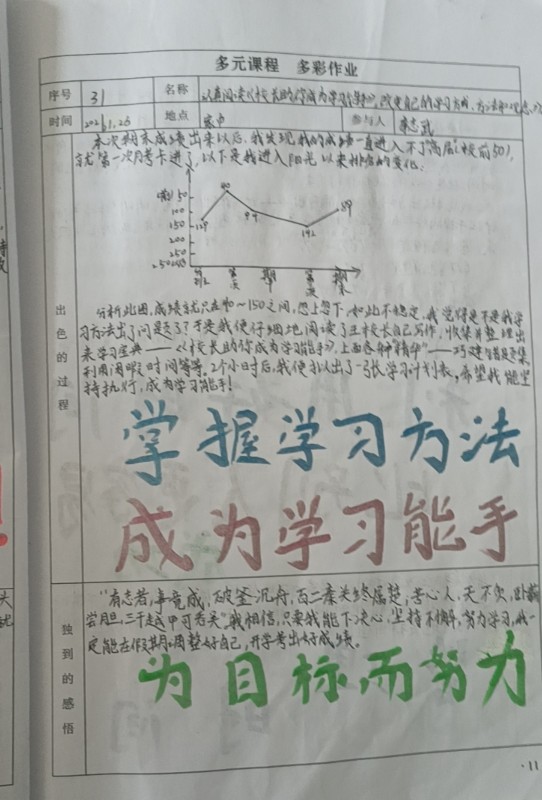 多元课程 多彩作业
序号 31 名称 认真阅读《校长助你成为学习能手》，改变自己的学习方式、方法和
时间 2021.1.26 地点 家中 参与人 李志武
本次期末成绩出来以后，我发现我的成绩一直进入不了"高层"(校前50)，
就第一次月考卡进了，以下是我进入阳光以来排名的变化。
50
100
150
200
250
129 40 99 142 89
分析此图，成绩就只在40～150之间，忽上忽下，如此不稳定，我觉得是不是我学
习方法出了问题了？于是我便仔细地阅读了王校长自己写作，收集并整理出
来学习宝典——《校长助你成为学习能手》，上面各种"精华"——巧建错题集
利用闲暇时间等等。2个小时后，我便拟出了一张学习计划表，希望我能坚
持执行，成为学习能手！
出色的过程
掌握学习方法
成为学习能手
"有志者，事竟成，破釜沉舟，百二秦关终属楚；苦心人，天不欠，卧薪
尝胆，三千越甲可吞吴"，我相信，只要我能下决心，坚持不懈，努力学习，我一
定能在假期调整好自己，开学考出好成绩。
独到的感悟
为目标而努力
·11